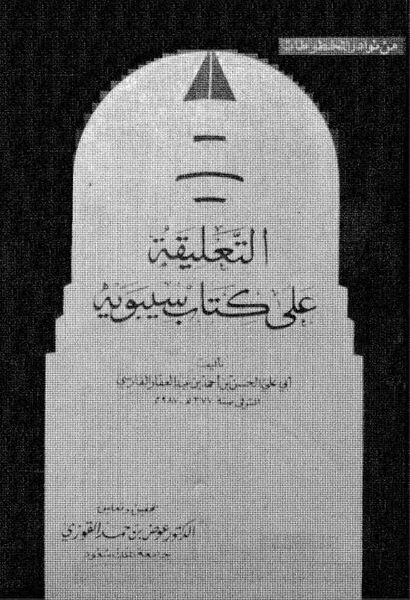 من نوادر المخطوطات
التَّعليقة
على كتاب سيبويه
تأليف
أبي علي الحسن بن أحمد بن عبد الغفار الفارسي
المتوفى سنة ٣٧٧هـ - ٩٨٧م
تحقيق وتعليق
الدكتور عوض بن حمد القوزي
جامعة الملك سعود